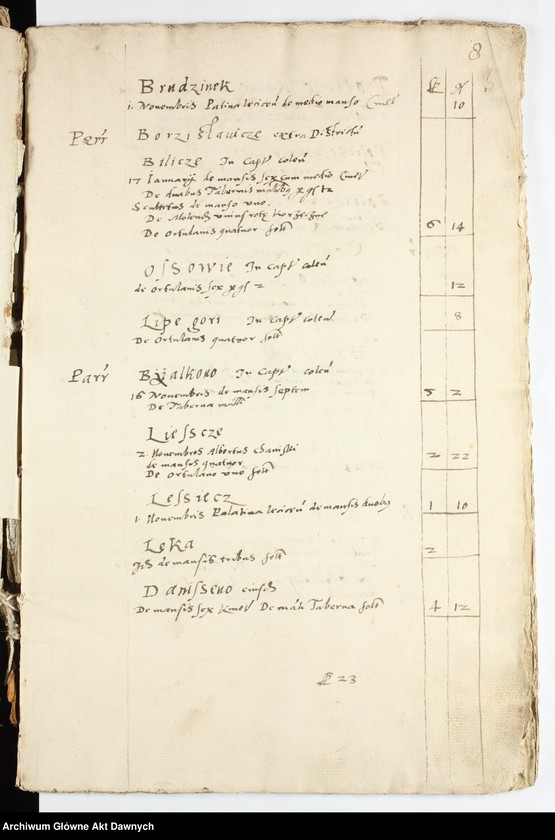 8
Brudzinek
1. Novembris Palatina lencicen de medio manso Cmet 10
Parr Borzislavicze extra Districtu
Bilicze In Capt colen
17 Ianuarij de mansis sex cum medio Cmet
De duabus Tabernis
Scultetus de manso uno.
De Molend unius rotę korzeczne
De Ortulanis quatuor solt 6 14
Ossowie In Capt colen
de Ortulanis sex p gs 2 12
Lipe gori In Capt colen 8
De Ortulanis quatuor solt
Parr Byalkovo In Capt colen
16 Novembris de mansis septem 5 2
De Taberna
Liesscze
2 Novembris Albertus Chaniski
de mansis quatuor 2 22
De Ortulano uno solt
Lessiecz
1. Novembris Palatina lencicen de mansis duobus 1 10
Leka
de mansis tribus solt 2
Danissevo eiusd
De mansis sex kmet De Taberna solt 4 12
23
Archiwum Główne Akt Dawnych